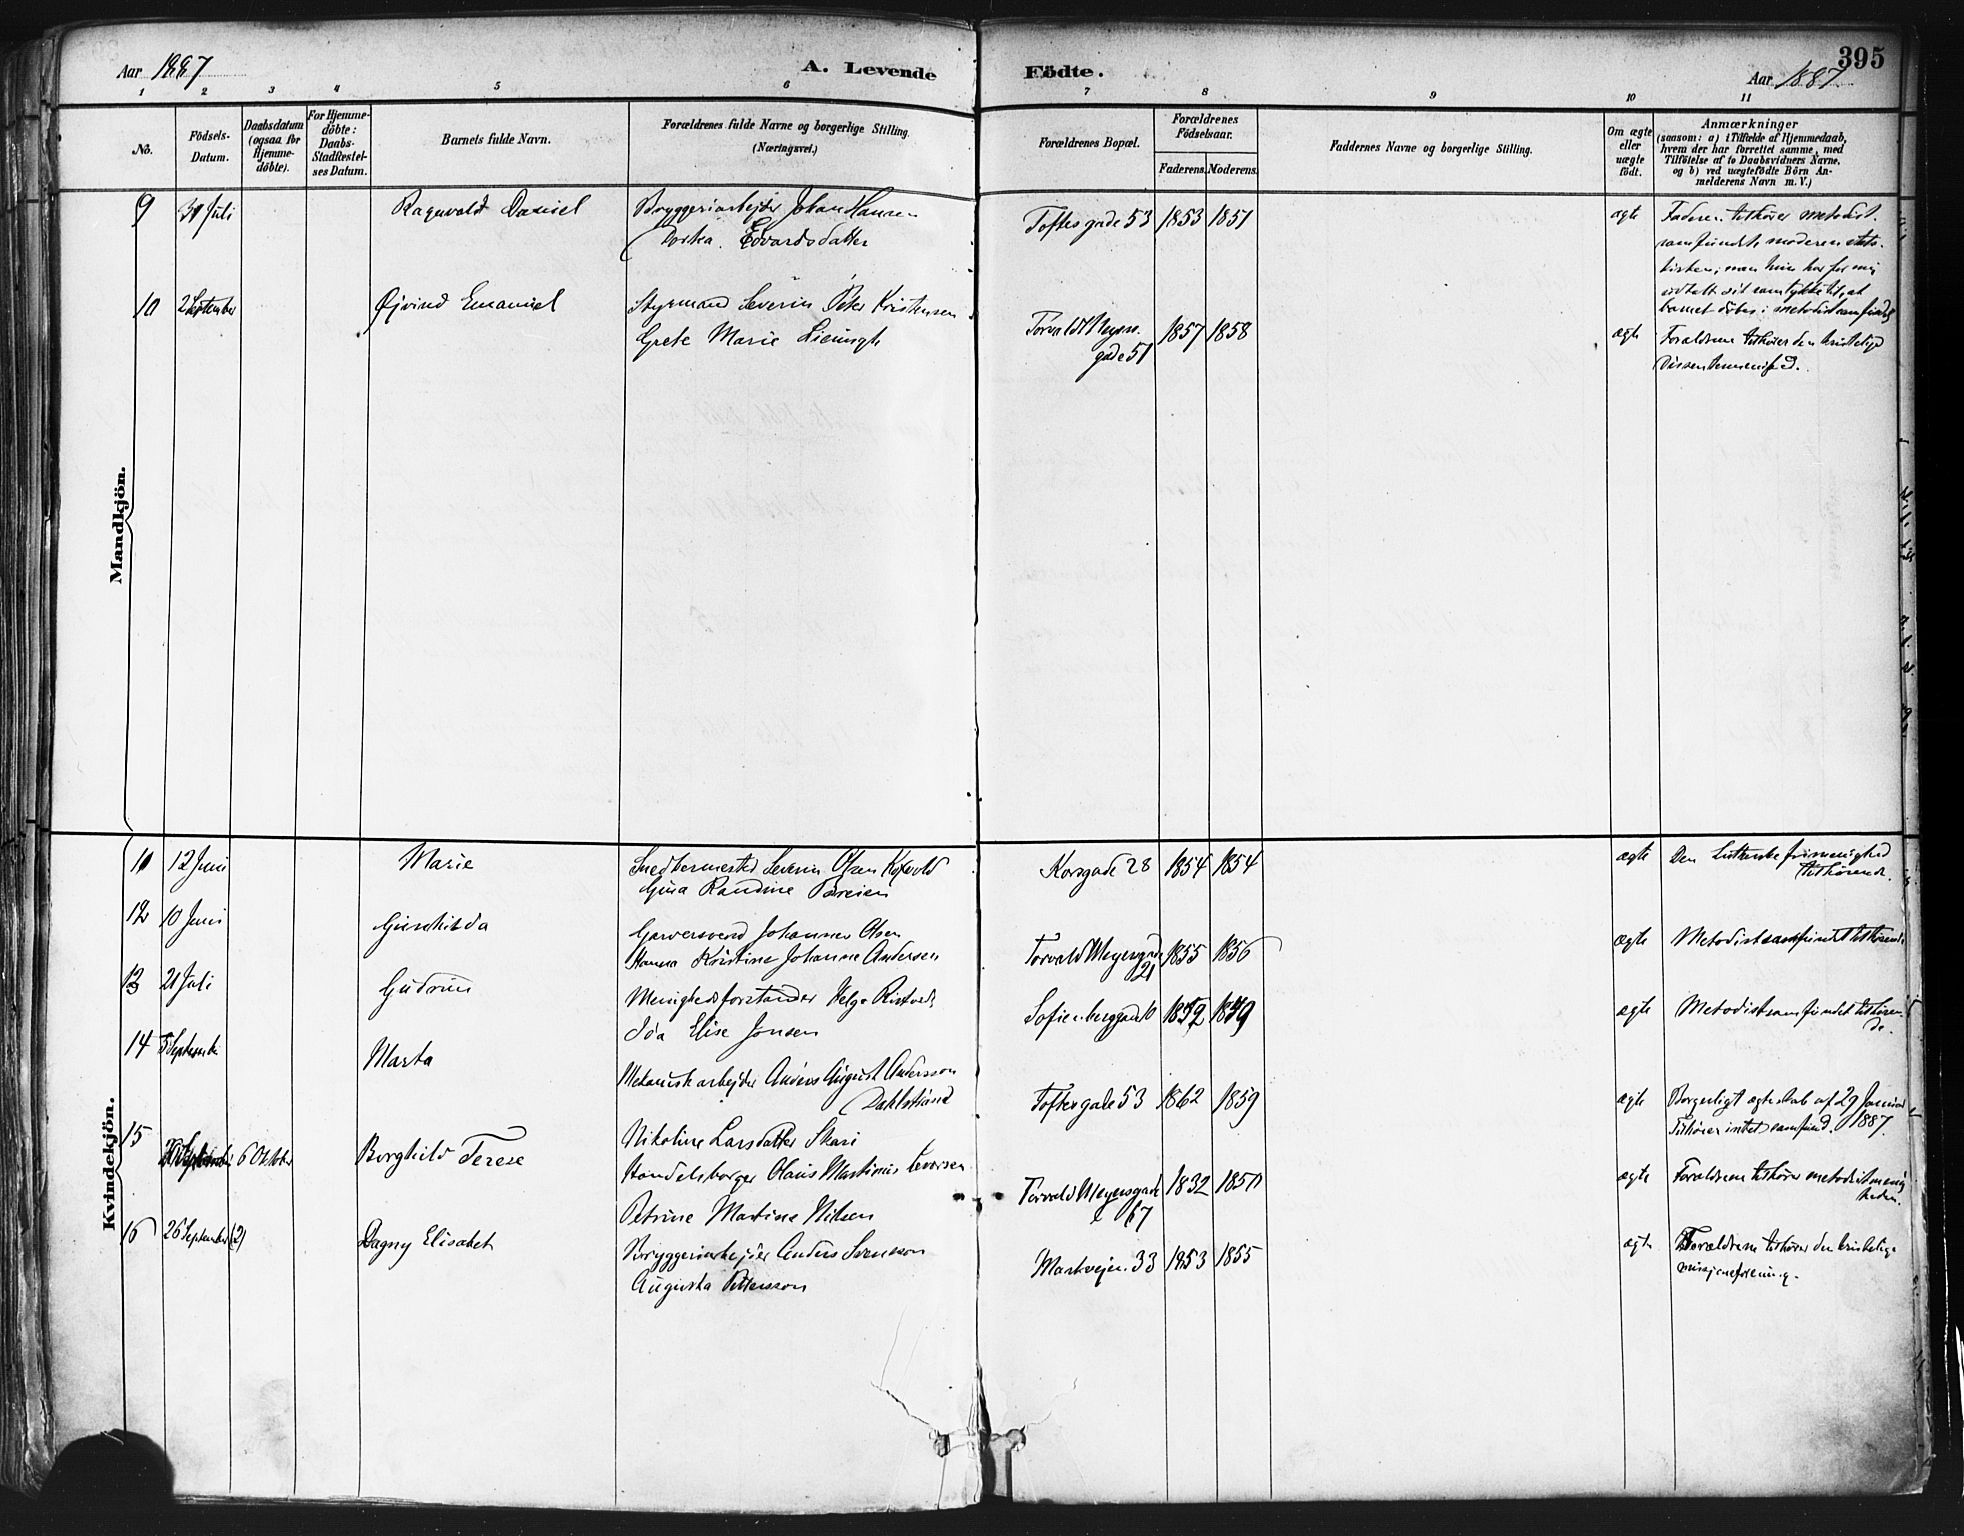 Aar 1887
A. Levende
Födte.
395
Aar 1887
1 2 3 4 5 6 7 8 9 10 11
No.
Födsels-
Datum.
Daabsdatum
(ogsaa for
Hjemme-
döbte).
For Hjemme-
döbte:
Daabs-
Stadfæstel-
ses Datum.
Barnets fulde Navn.
Forældrenes fulde Navne og borgerlige Stilling.
(Næringsvei.)
Forældrenes Bopæl.
Forældrenes
Födselsaar.
Faderens. Moderens.
Faddernes Navne og borgerlige Stilling.
Om ægte
eller
uægte
födt.
Anmærkninger
(saasom: a) i Tilfælde af Hjemmedaab,
hvem der har forrettet samme, med
Tilföielse af to Daabsvidners Navne,
og b) ved uægtefödte Börn An-
melderens Navn m. V.)
Mandkjön.
9 Juli Ragnvald Daniel Bryggeriarbejder Johan Hansen
Dortea Edvardsdatter
Toftesgade 53 1853 1851 ægte Faderen tilhører metodist-
samfundet, moderen stats-
kirken; men hun har for mig
udtalt sit samtykke til, at
barnet døbes i metodistsamfundet
10 2 September Øjvind Emanuel Styrmand Severin Peter Kristensen
Grete Marie
Torvald Meyers
gade 51 1857 1858 ægte Forældrene tilhører den kristelige
Dissentermenighed.
Kvindekjön.
11 12 Juni Marie Snedkermester Severin Olsen
Gina Randine
Korsgade 28 1854 1854 ægte Den Lutherske frimenighed
tilhørende.
12 10 Juni Gunhilda Garversvend Johannes Olsen
Hanna Kristine Johanne Andersen
Torvald Meyersgade
21 1855 1856 ægte Metodistsamfundet tilhørende
13 21 Juli Gudrun Menighedsforstander Helge
Ida Elise Jensen
Sofienberggade 10 ægte Metodistsamfundet tilhøren-
de.
14 5 September Marta Mekanisk arbejder Anders August Andersson
Dahlstrand
Nikoline Larsdatter Skari
Toftesgade 53 1862 1859 ægte Borgerligt ægteskab af 29 Januar
1887.
Tilhører intet samfund.
15 September 6 Oktober Borghild Terese Handelsborger Olaus Martinus Iversen
Petrine Martine Nilsen
Torvald Meyersgade
67 1832 1851 ægte Forældrene tilhører metodistmenig
heden.
16 26 September (2) Dagny Elisabet Bryggeriarbejder Anders Svensson
Augusta Pettersson
Markvejen 33 1853 1855 ægte Forældrene tilhører den kristelige
missionsforening.